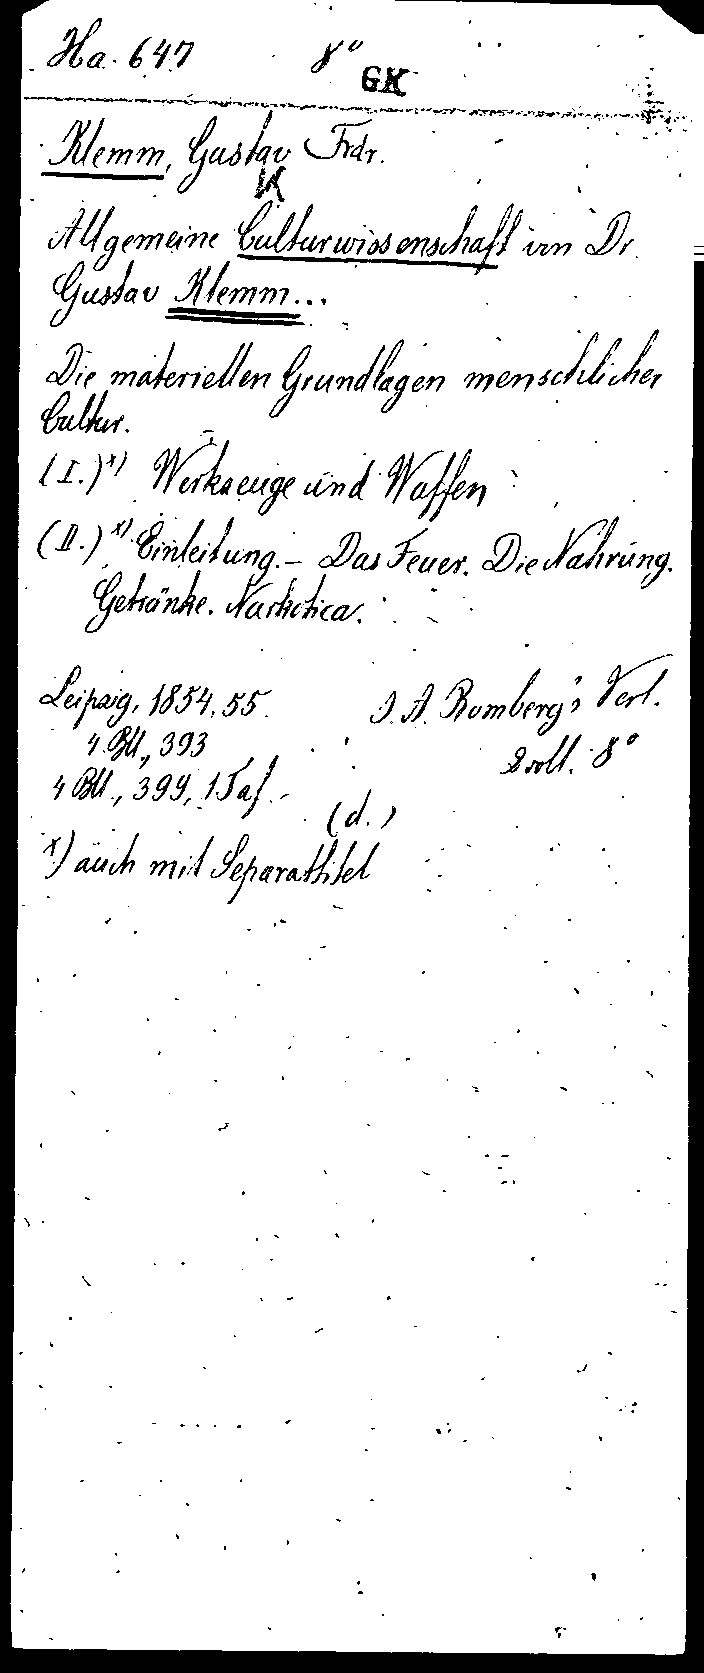 Ha. 647 8°
GK
Klemm, Gustav Frdr.
K
Allgemeine Culturwissenschaft von Dr.
Gustav Klemm...
Die materiellen Grundlagen menschlicher
Cultur.
(I.)ˣ⁾ Werkzeuge und Waffen
(II.)ˣ⁾ Einleitung. – Das Feuer. Die Nahrung.
Getränke. Narkotica.
Leipzig, 1854, 55. J. A. Romberg's Verl.
4 Bll., 393 2 voll. 8°
4 Bll., 399, 1 Taf.
(d.)
ˣ⁾ auch mit Separattitel